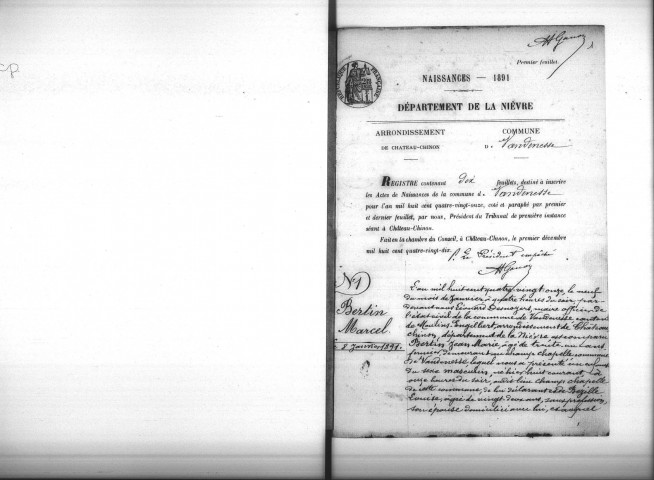 cp
Premier feuillet.
NAISSANCES — 1891
DÉPARTEMENT DE LA NIÈVRE
ARRONDISSEMENT
DE CHATEAU-CHINON
COMMUNE
D e Vandenesse
REGISTRE contenant dix feuillets, destiné à inscrire
les Actes de Naissances de la commune de Vandenesse
pour l'an mil huit cent quatre-vingt-onze, coté et paraphé par premier
et dernier feuillet, par nous, Président du Tribunal de première instance
séant à Château-Chinon.
Fait en la chambre du Conseil, à Château-Chinon, le premier décembre
mil huit cent quatre-vingt-dix.
p. Le Président empêché
N°1
Bertin
Marcel
8 Janvier 1891.
L'an mil huit cent quatre vingt onze, le neuf
du mois de Janvier, à quatre heures du soir, par
devant nous Edouard maire officier de
l'état civil de la commune de Vandenesse canton
de Moulins Engilbert, arrondissement de Château
Chinon, département de la Nièvre est comparu
Bertin Jean Marie, âgé de trente un ans
demeurant au champ chapelle commune
de Vandenesse lequel nous a présenté un enfant
du sexe masculin, né hier huit courant, à
onze heures du soir, au dit lieu champ chapelle
de cette commune, de lui déclarant et de
Louise, âgée de vingt deux ans, sans profession,
son épouse domiciliée avec lui, et auquel